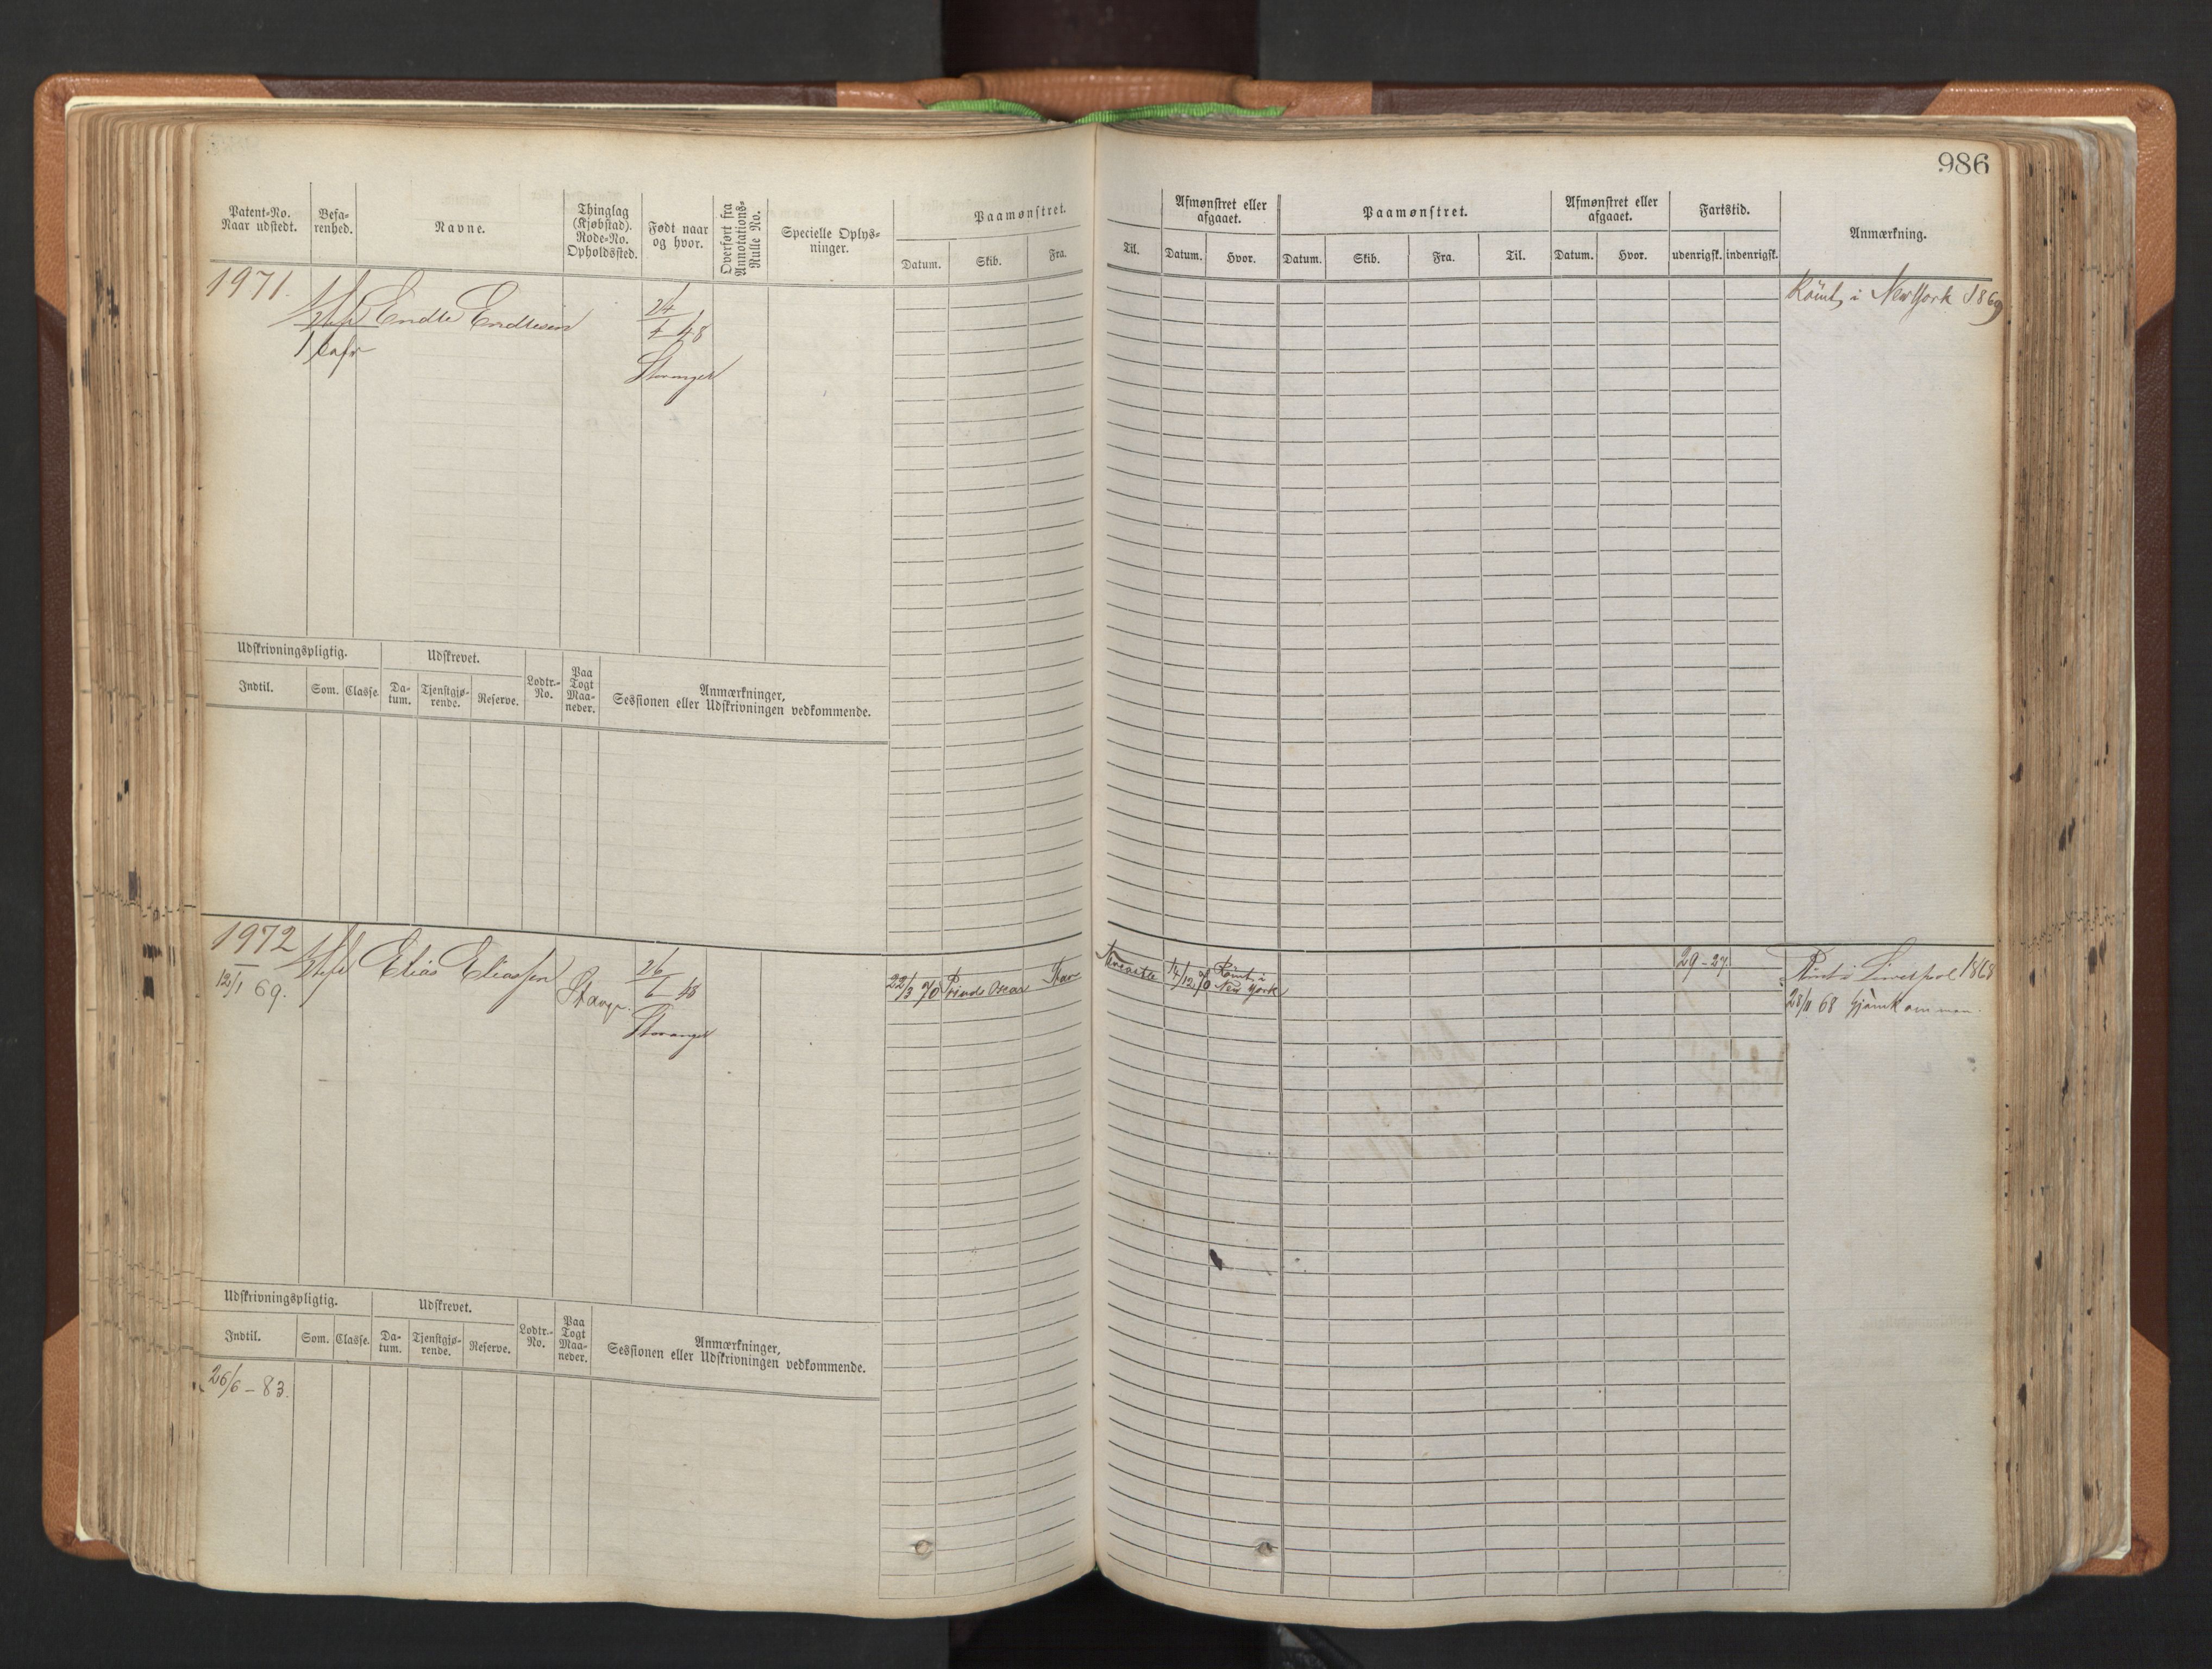 986
Patent-No. Naar udstedt.
Befarenhed.
Navne.
Thinglag (Kjøbstad). Rode-No. Opholdssted.
Født naar og hvor.
Overført fra Annotations-Rulle No.
Specielle Oplysninger.
Paamønstret.
Datum. Skib. Fra.
Til.
Afmønstret eller afgaaet.
Datum. Hvor.
Paamønstret.
Datum. Skib. Fra. Til.
Afmønstret eller afgaaet.
Datum. Hvor.
Fartstid.
udenrigsk. indenrigsk.
Anmærkning.
1971.
Endle Endlesen
24
48
Stavanger
Römt i New York 1869
Udskrivningspligtig. Udskrevet. Lodtr.-No. Paa Togt Maaneder. Anmærkninger, Sessionen eller Udskrivningen vedkommende.
Indtil. Som. Classe. Datum. Tjenstgjørende. Reserve.
1972
12/1 69.
Elias Eliassen
Stavgr.
26
6 48
Stavanger
22/3 70 Prinds Oscar Stav
14/12 70 Römt i New York
29-27.
Römt i Liverpool 1868
28/11 68 hjemkommen.
Udskrivningspligtig. Udskrevet. Lodtr.-No. Paa Togt Maaneder. Anmærkninger, Sessionen eller Udskrivningen vedkommende.
Indtil. Som. Classe. Datum. Tjenstgjørende. Reserve.
26/6-83.